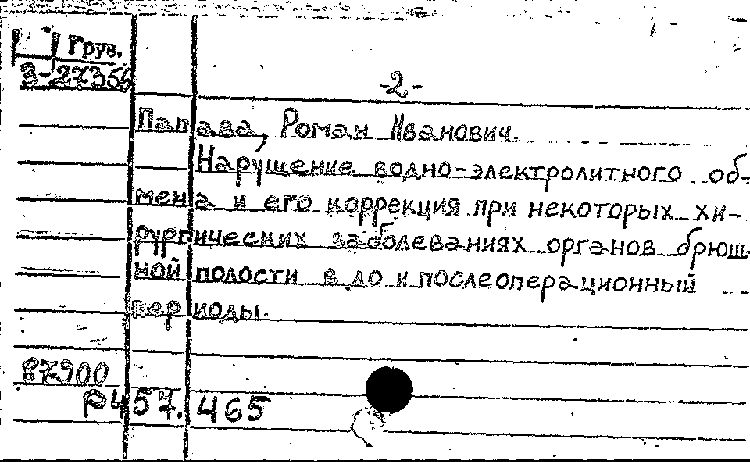 Груз.
3-27356
-2-
Папава, Роман Иванович.
Нарушение водно-электролитного об-
мена и его коррекция при некоторых хи-
рургических заболеваниях органов брюш-
ной полости в до и послеоперационный
периоды.
87900
P457.465